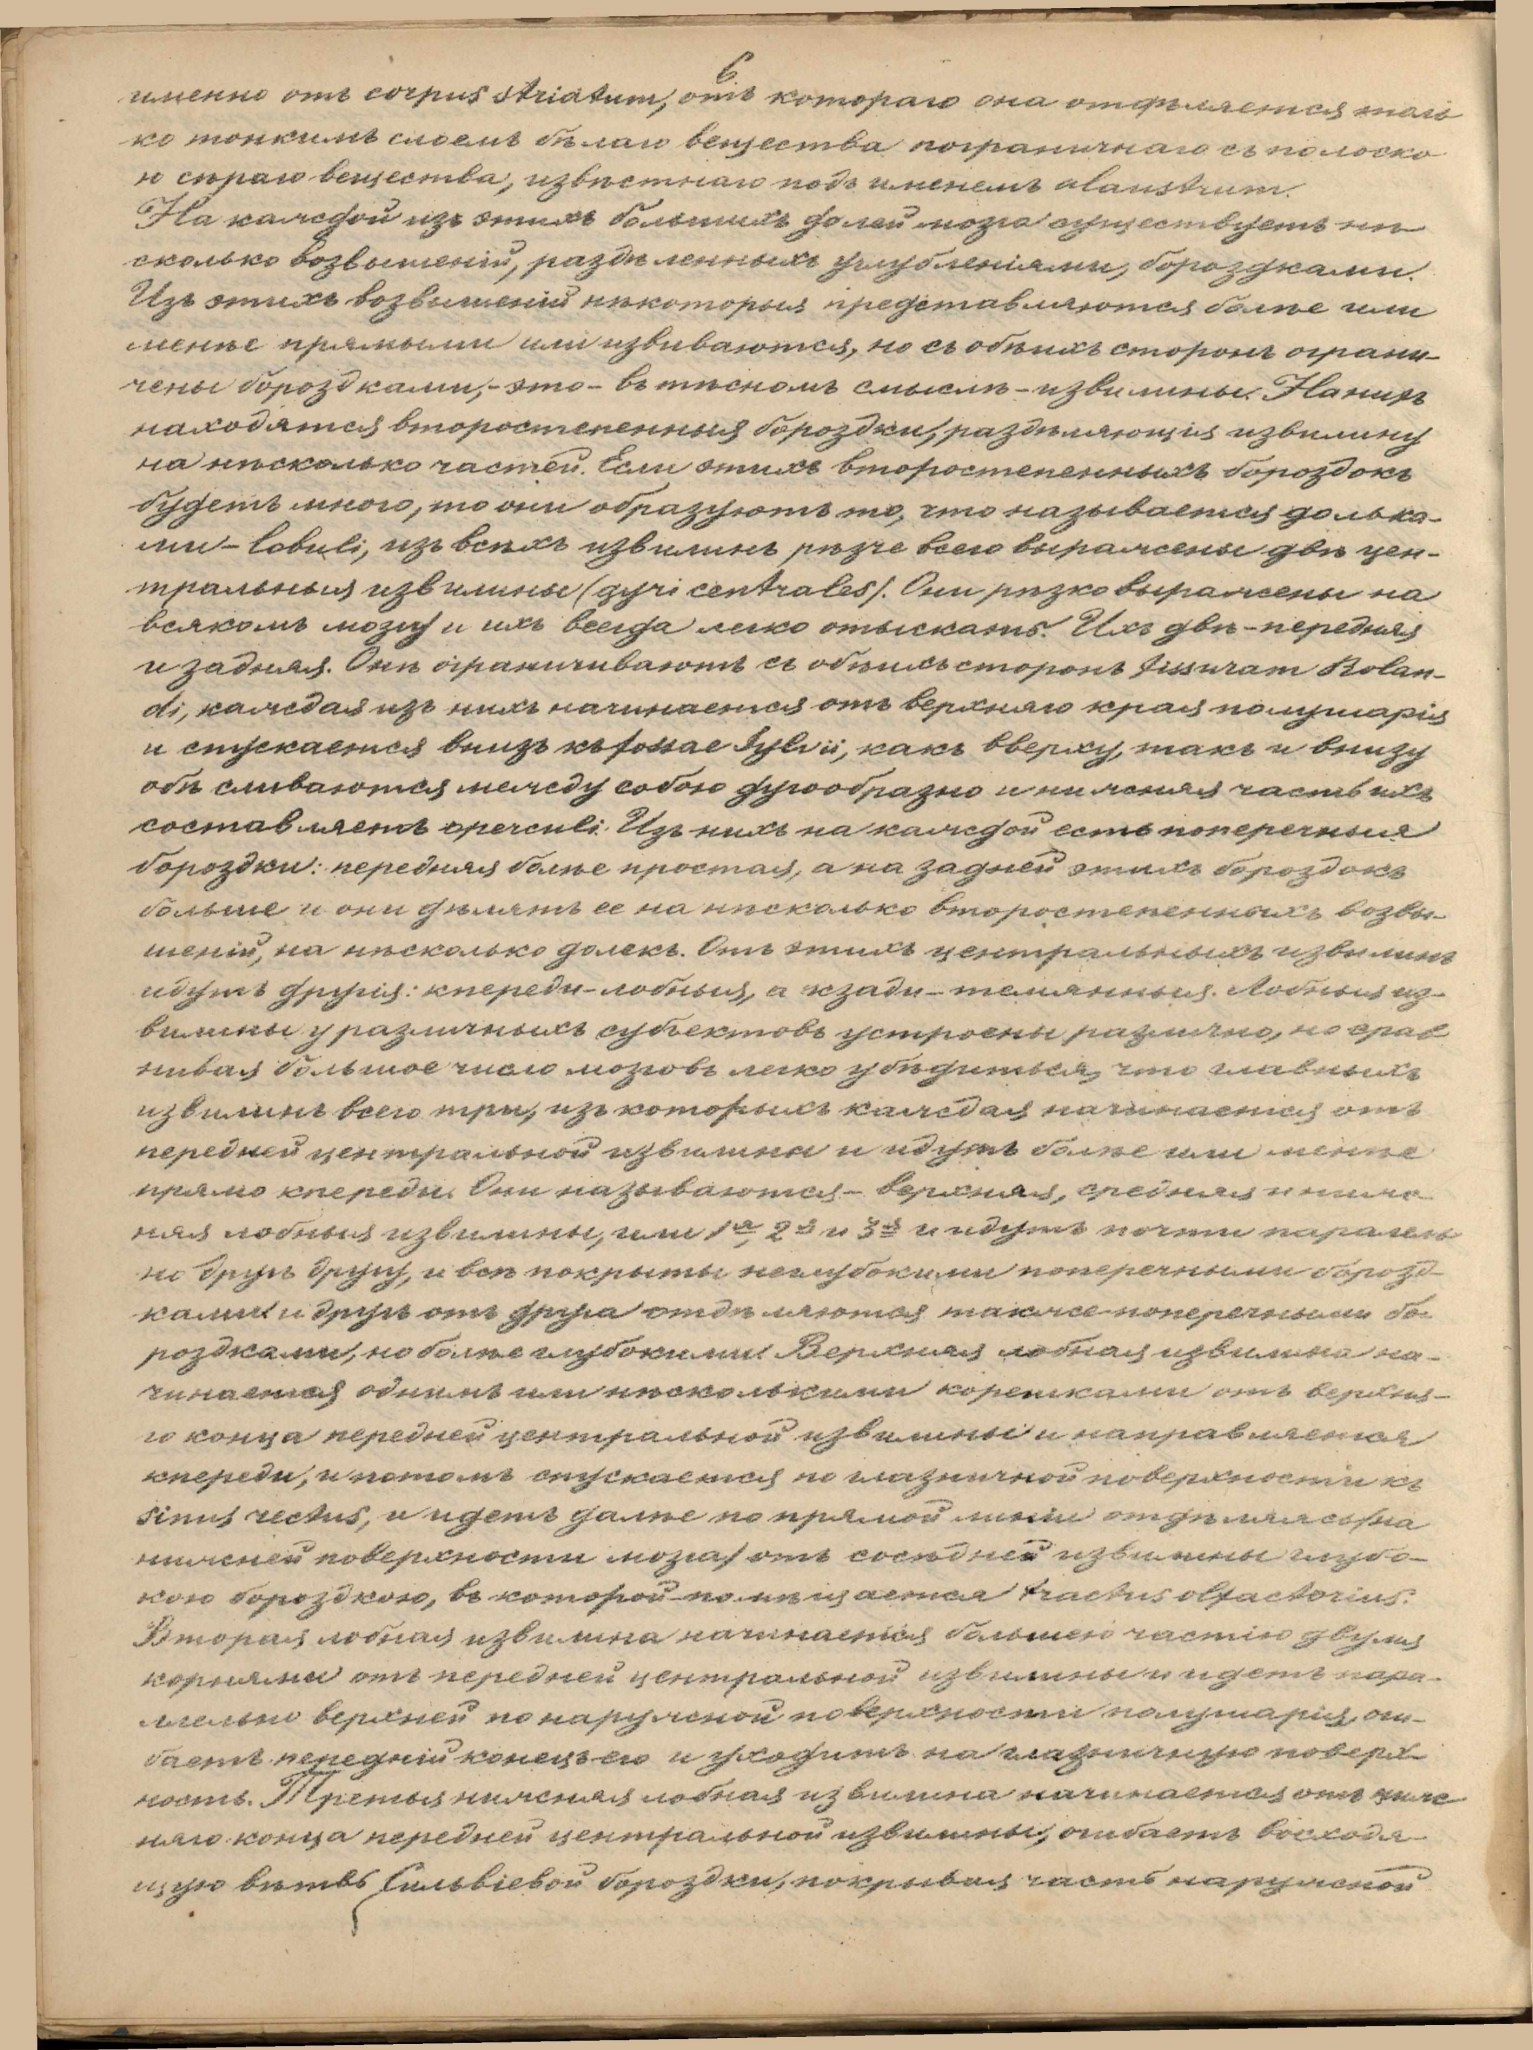 6
именно отъ corpus striatum, отъ котораго она отдѣляется толь
ко тонкимъ слоемъ бѣлаго вещества пограничнаго съ полоско
ю сѣраго вещества, извѣстнаго подъ именемъ alaustrum.
На каждой изъ этихъ большихъ долей мозга существуетъ нѣ
сколько возвышеній, раздѣленныхъ углубленіями, бороздками.
Изъ этихъ возвышеній нѣкоторыя представляются болѣе или
менѣе прямыми или извиваются, но съ обѣихъ сторонъ ограни-
чены бороздками,- это - въ тѣсномъ смыслѣ - извилины. На нихъ
находятся второстепенныя бороздки, раздѣляющія извилину
на нѣсколько частей. Если этихъ второстепенныхъ бороздокъ
будетъ много, то они образуютъ то, что называется долька-
ми - lobuli, изъ всѣхъ извилинъ рѣзче всего выражены двѣ цен-
тральныя извилины (gyri centrales). Они рѣзко выражены на
всякомъ мозгу и ихъ всегда легко отыскать. Ихъ двѣ - передняя
и задняя. Онѣ ограничиваютъ съ обѣихъ сторонъ fissuram Rolan-
di, каждая изъ нихъ начинается отъ верхняго края полушарія
и спускается внизъ къ fossae Sylvii, какъ вверху, такъ и внизу
обѣ сливаются между собою дугообразно и нижняя часть ихъ
составляетъ operculi. Изъ нихъ на каждой есть поперечныя
бороздки: передняя болѣе простая, а на задней этихъ бороздокъ
больше и они дѣлятъ ее на нѣсколько второстепенныхъ возвы-
шеній, на нѣсколько долекъ. Отъ этихъ центральныхъ извилинъ
идутъ другія: кпереди - лобныя, а кзади - темянныя. Лобныя из-
вилины у различныхъ субъектовъ устроены различно, но срав
нивая большое число мозговъ легко убѣдиться, что главныхъ
извилинъ всего три, изъ которыхъ каждая начинается отъ
передней центральной извилины и идутъ болѣе или менѣе
прямо кпереди. Они называются - верхняя, средняя и ниж
няя лобныя извилины, или 1я, 2я и 3я и идутъ почти паралель
но другъ другу, и всѣ покрыты неглубокими поперечными борозд-
ками и другъ отъ друга отдѣляются также поперечными бо
роздками, но болѣе глубокими. Верхняя лобная извилина на-
чинается однимъ или нѣсколькими корешками отъ верхня-
го конца передней центральной извилины и направляется
кпереди, и потомъ спускается по глазничной поверхности къ
sinus rectus, и идетъ далѣе по прямой линіи отдѣляясь (на
нижней поверхности мозга) отъ сосѣдней извилины глубо-
кою бороздкою, въ которой помѣщается tractus olfactorius.
Вторая лобная извилина начинается большею частію двумя
корнями отъ передней центральной извилины и идетъ пара-
ллельно верхней по наружной поверхности полушарія, оги-
баетъ передній конецъ его и уходитъ на глазничную поверх-
ность. Третья нижняя лобная извилина начинается отъ ниж
няго конца передней центральной извилины, огибаетъ восходя-
щую вѣтвь Сильвіевой бороздки, покрывая часть наружной